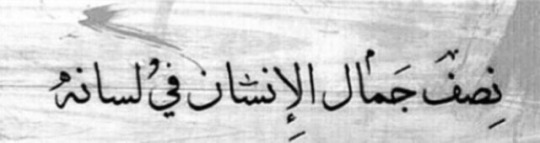 نِصفُ جَمال الإِنسان في لسانهُ